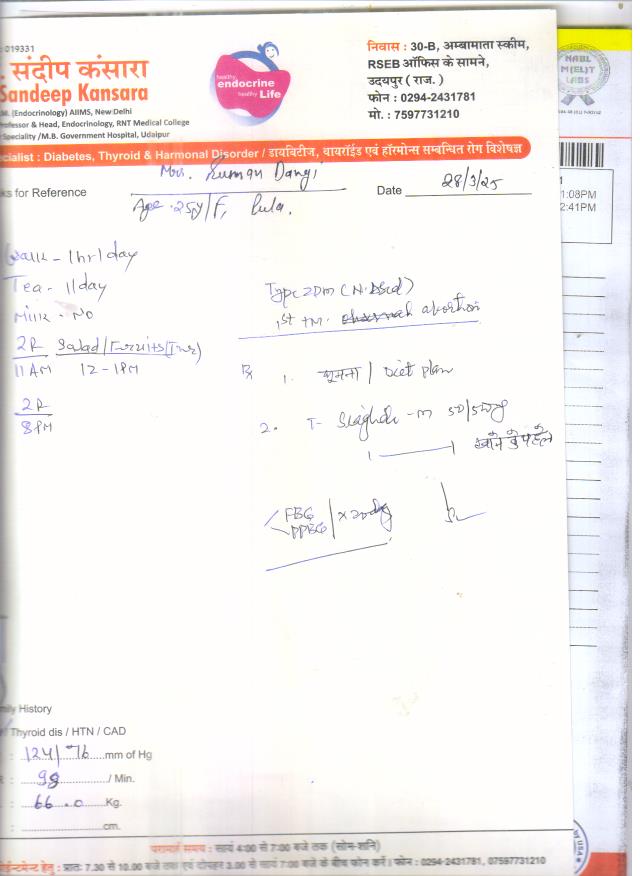 : 019331
. संदीप कंसारा
Sandeep Kansara
M. (Endocrinology) AIIMS, New Delhi
rofessor & Head, Endocrinology, RNT Medical College
Speciality /M.B. Government Hospital, Udaipur
healthy
endocrine
healthy Life
निवास : 30-B, अम्बामाता स्कीम,
RSEB ऑफिस के सामने,
उदयपुर ( राज. )
फोन : 0294-2431781
मो. : 7597731210
NABL
M(EL)T
LABS
ecialist : Diabetes, Thyroid & Harmonal Disorder / डायबिटीज, थायरॉईड एवं हॉरमोन्स सम्बन्धित रोग विशेषज्ञ
ks for Reference
Mrs. Suman Dangi
Date 28/3/25
Age . 25y/F,
1:08PM
2:41PM
Walk - 1hr/day
Tea - 1/day
Milk - NO
2R Salad/Fruits
11 AM 12 - 1PM
2R
8PM
Type 2 DM
1st abortion
Rx 1. घूमना / Diet plan
2. T- - M 50/500mg
1 1 खाने से पहले
FBG
PPBG
mily History
Thyroid dis / HTN / CAD
: 124/76 mm of Hg
: 98 / Min.
: 66.0 Kg.
: cm.
परामर्श समय : सायं 4:00 से 7:00 बजे तक (सोम-शनि)
ईन्टमेन्ट हेतु : प्रातः 7.30 से 10.00 बजे तक एवं दोपहर 3.00 से सायं 7:00 बजे के बीच फोन करें। फोन : 0294-2431781, 07597731210